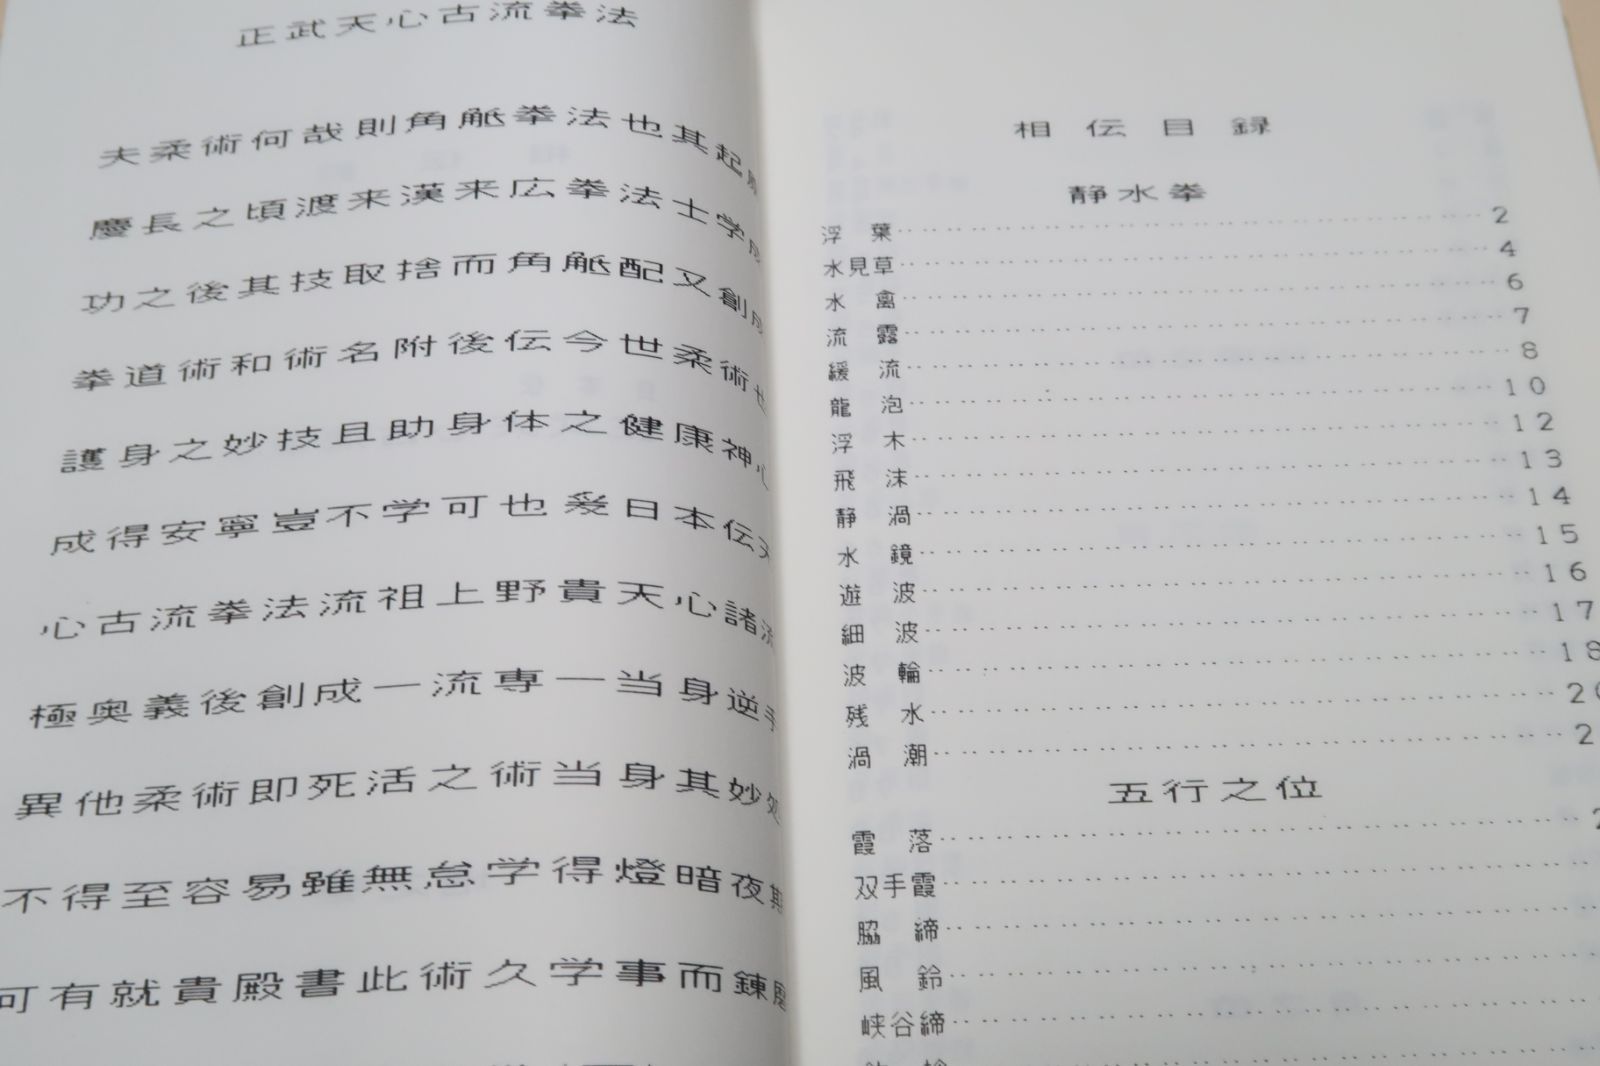 正武天心古流拳法
夫柔術何哉則角觝拳法也其起
慶長之頃渡来漢来広拳法士学成
功之後其技取捨而角觝配又創成
拳道術和術名附後伝今世柔術也
護身之妙技且助身体之健康神心
成得安寧豈不学可也爰日本伝天
心古流拳法流祖上野貴天心諸流
極奥義後創成一流専一当身逆手
異他柔術即死活之術当身其妙処
不得至容易雖無怠学得燈暗夜
可有就貴殿書此術久学事而錬磨
相伝目録
静水拳
浮葉 2
水見草 4
水禽 6
流露 7
緩流 8
龍泡 10
浮木 12
飛沫 13
静渦 14
水鏡 15
遊波 16
細波 17
波輪 18
残水 20
渦潮 2
五行之位
霞落 2
双手霞
脇締
風鈴
峡谷締